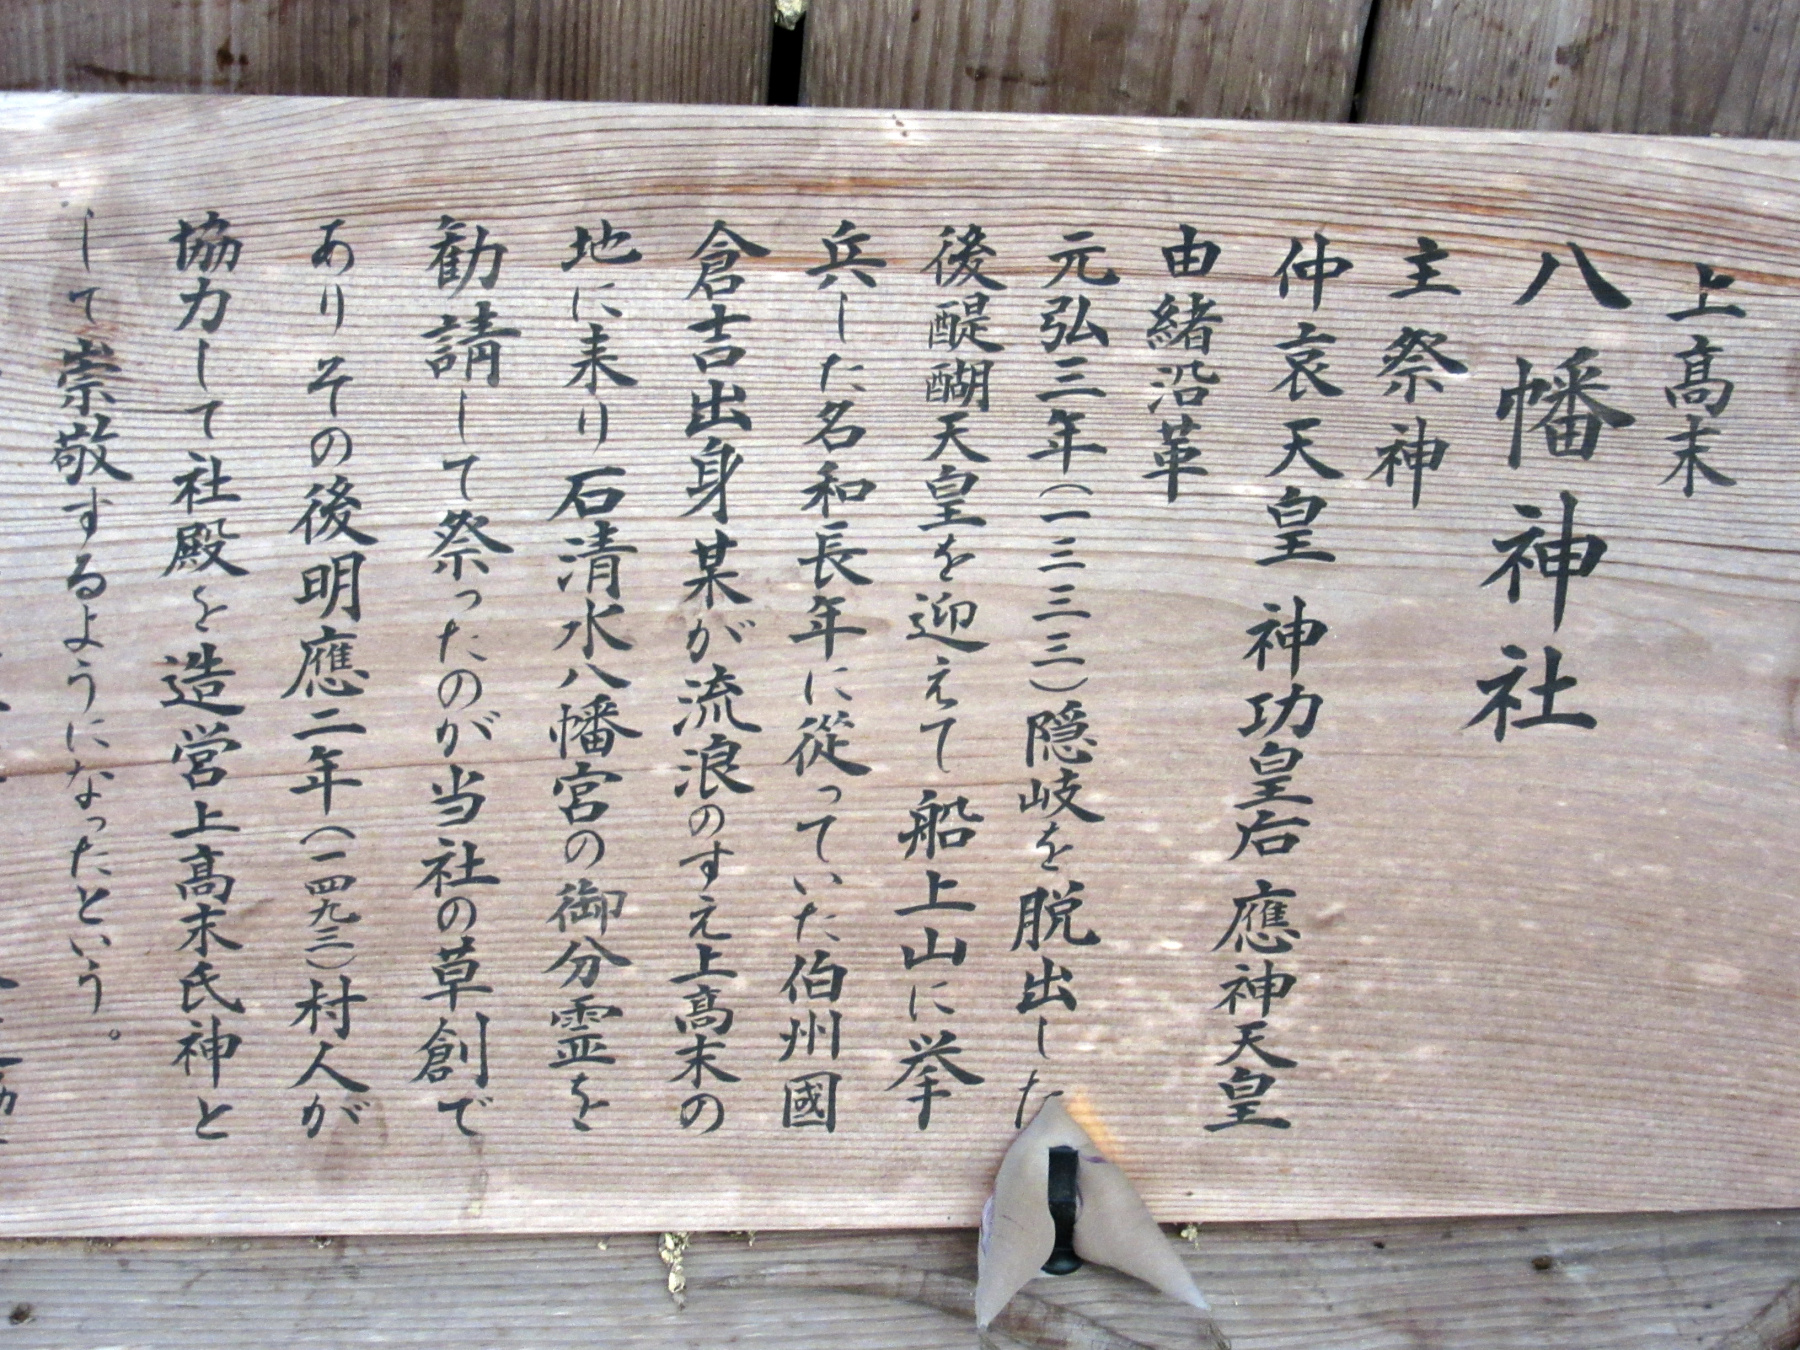 上髙末
八幡神社
主祭神
仲哀天皇　神功皇后　應神天皇
由緒沿革
元弘三年（一三三三）隠岐を脱出した
後醍醐天皇を迎えて船上山に挙
兵した名和長年に従っていた伯州國
倉吉出身某が流浪のすえ上髙末の
地に来り石清水八幡宮の御分霊を
勧請して祭ったのが当社の草創で
ありその後明應二年（一四九三）村人が
協力して社殿を造営上髙末氏神と
して崇敬するようになったという。